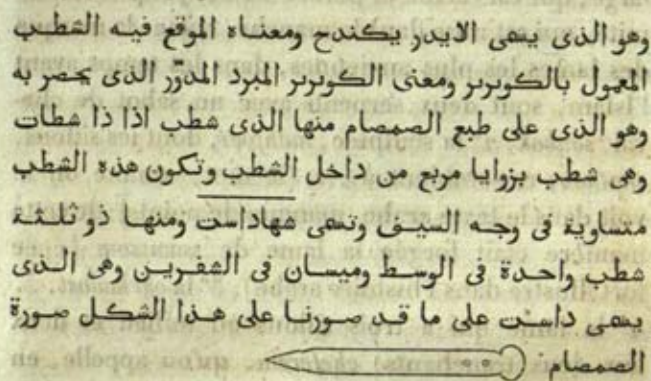 وهو الذى يسمى الايدر يكندح ومعناه الموقع فيه الشطب
المعمول بالكوبربر ومعنى الكوبربر المبرد المدوّر الذى يحصر به
وهو الذى على طبع الصمصام منها الذى شطب اذا ذا شطات
وهى شطب بزوايا مربع من داخل الشطب وتكون هذه الشطب
متساوية فى وجه السيف وتسمى شهاداست ومنها ذو ثلثة
شطب واحدة فى الوسط وميسان فى الشفرين وهى الذى
يسمى داست على ما قد صورنا على هذا الشكل صورة
الصمصام